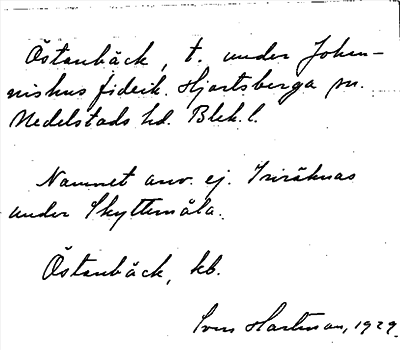 Östanbäck, t. under Johan-
nishus fideik. Hjortsberga sn.
Medelstads hd. Blek. l.
Namnet anv. ej. Inräknas
under Skyttemåla.
Östanbäck, kb.
Sven Hartman, 1929.